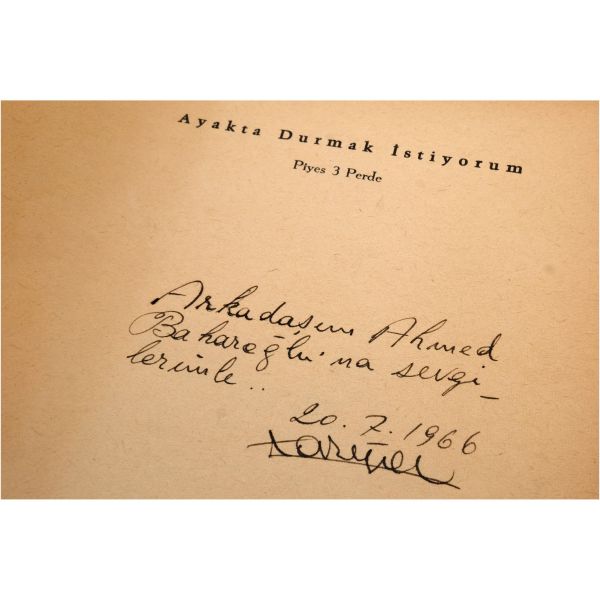 Ayakta Durmak İstiyorum
Piyes 3 Perde
Arkadaşım Ahmed
Baharoğlu'na sevgi_
lerimle..
20.7.1966